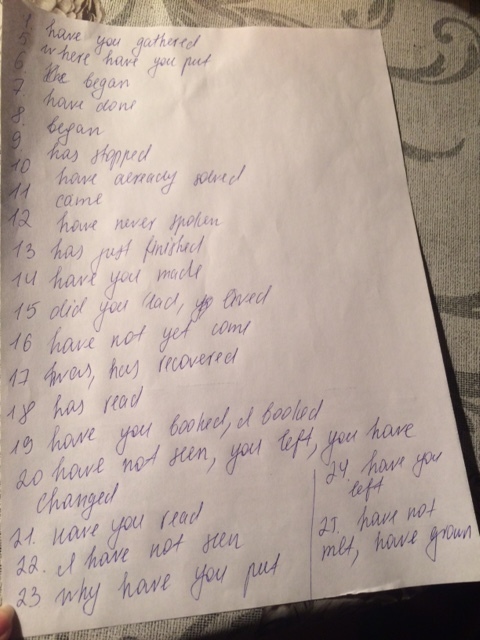 have you gathered
5 where have you put
6 began
7 have done
8. began
9 has stopped
10 have already solved
11 came
12 have never spoken
13 has just finished
14 have you made
15 did you lead, loved
16 have not yet come
17 was, has recovered
18 has read
19 have you booked, I booked
20 have not seen, you left, you have
changed
21. Have you read
22. I have not seen
23 why have you put
24. have you
left
25. have not
met, have grown